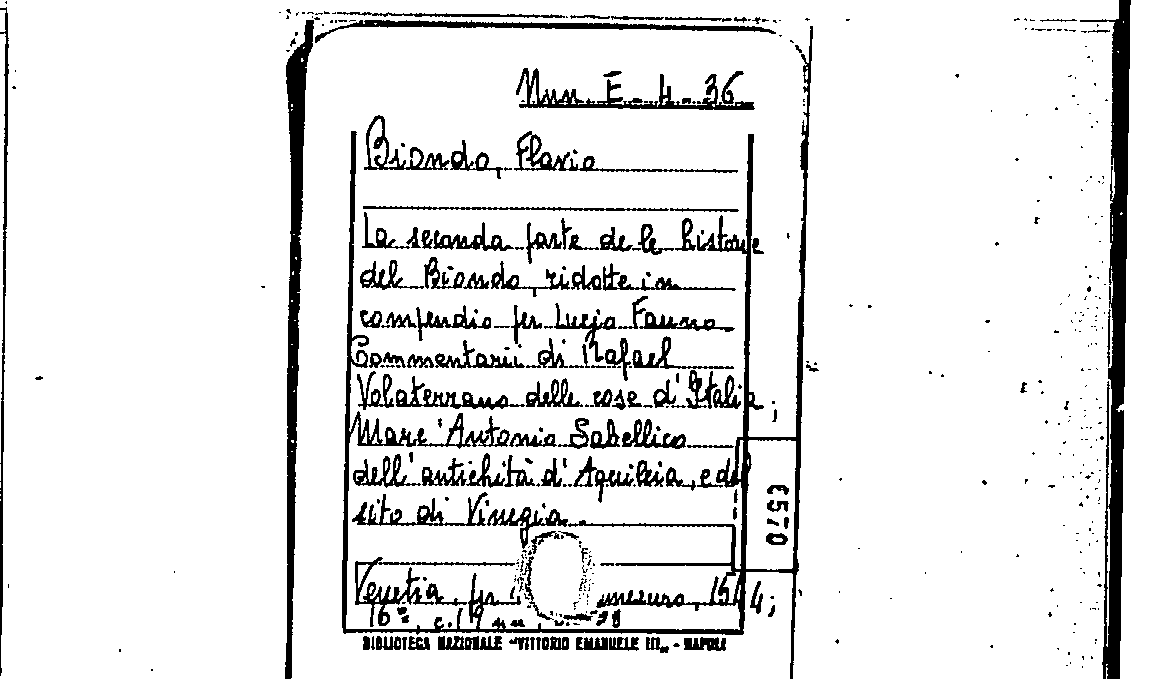 Nun. E. 4. 36
Biondo, Flavio
La seconda parte de le historie
del Biondo, ridotte in
compendio per Lucio Fauno
Commentarii di Rafael
Volaterrano delle cose d'Italia;
Marc'Antonio Sabellico
dell'antichità d'Aquileia, e del
sito di Vinegia.
0753
Venetia, per
1544;
16º, c. 19 nn
BIBLIOTECA NAZIONALE "VITTORIO EMANUELE III„ - NAPOLI